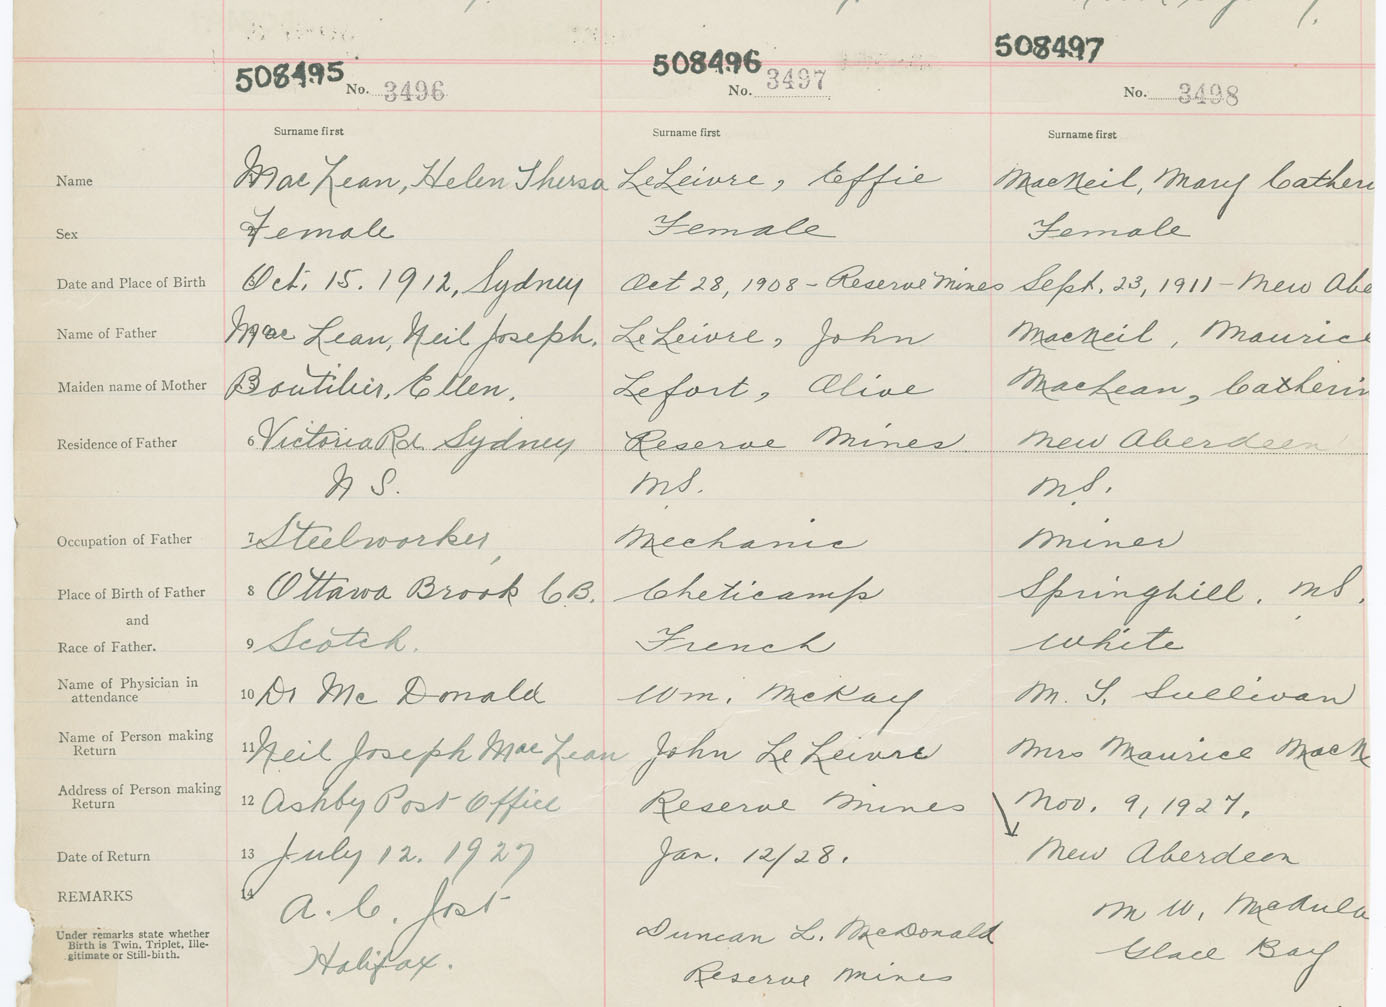 508495 508496 508497
No. 3496 No. 3497 No. 3498
Surname first Surname first Surname first
Name MacLean, Helen Thersa LeLeivre, Effie MacNeil, Mary Catheri
Sex 2 Female Female Female
Date and Place of Birth Oct. 15. 1912, Sydney Oct 28, 1908 - Reserve Mines Sept. 23, 1911 - New Abe
Name of Father Mac Lean, Neil Joseph. LeLeivre, John MacNeil, Maurice
Maiden name of Mother Boutilier, Ellen, Lefort, Olive MacLean, Catherin
Residence of Father 6 Victoria Rd Sydney Reserve Mines New Aberdeen
N S. NS. N.S.
Occupation of Father 7 Steelworker, Mechanic Miner
Place of Birth of Father 8 Ottawa Brook C.B. Cheticamp Springhill. NS.
and
Race of Father. 9 Scotch. French White
Name of Physician in
attendance 10 Dr Mc Donald Wm. McKay M. T. Sullivan
Name of Person making
Return 11 Neil Joseph MacLean John LeLeivre Mrs Maurice MacN
Address of Person making
Return 12 Ashby Post Office Reserve Mines Nov. 9, 1927.
Date of Return 13 July 12. 1927 Jan. 12/28. New Aberdeen
REMARKS 14 A. C. Jost M W.
Under remarks state whether
Birth is Twin, Triplet, Ille-
gitimate or Still-birth.
Halifax. Duncan L. McDonald Glace Bay
Reserve Mines